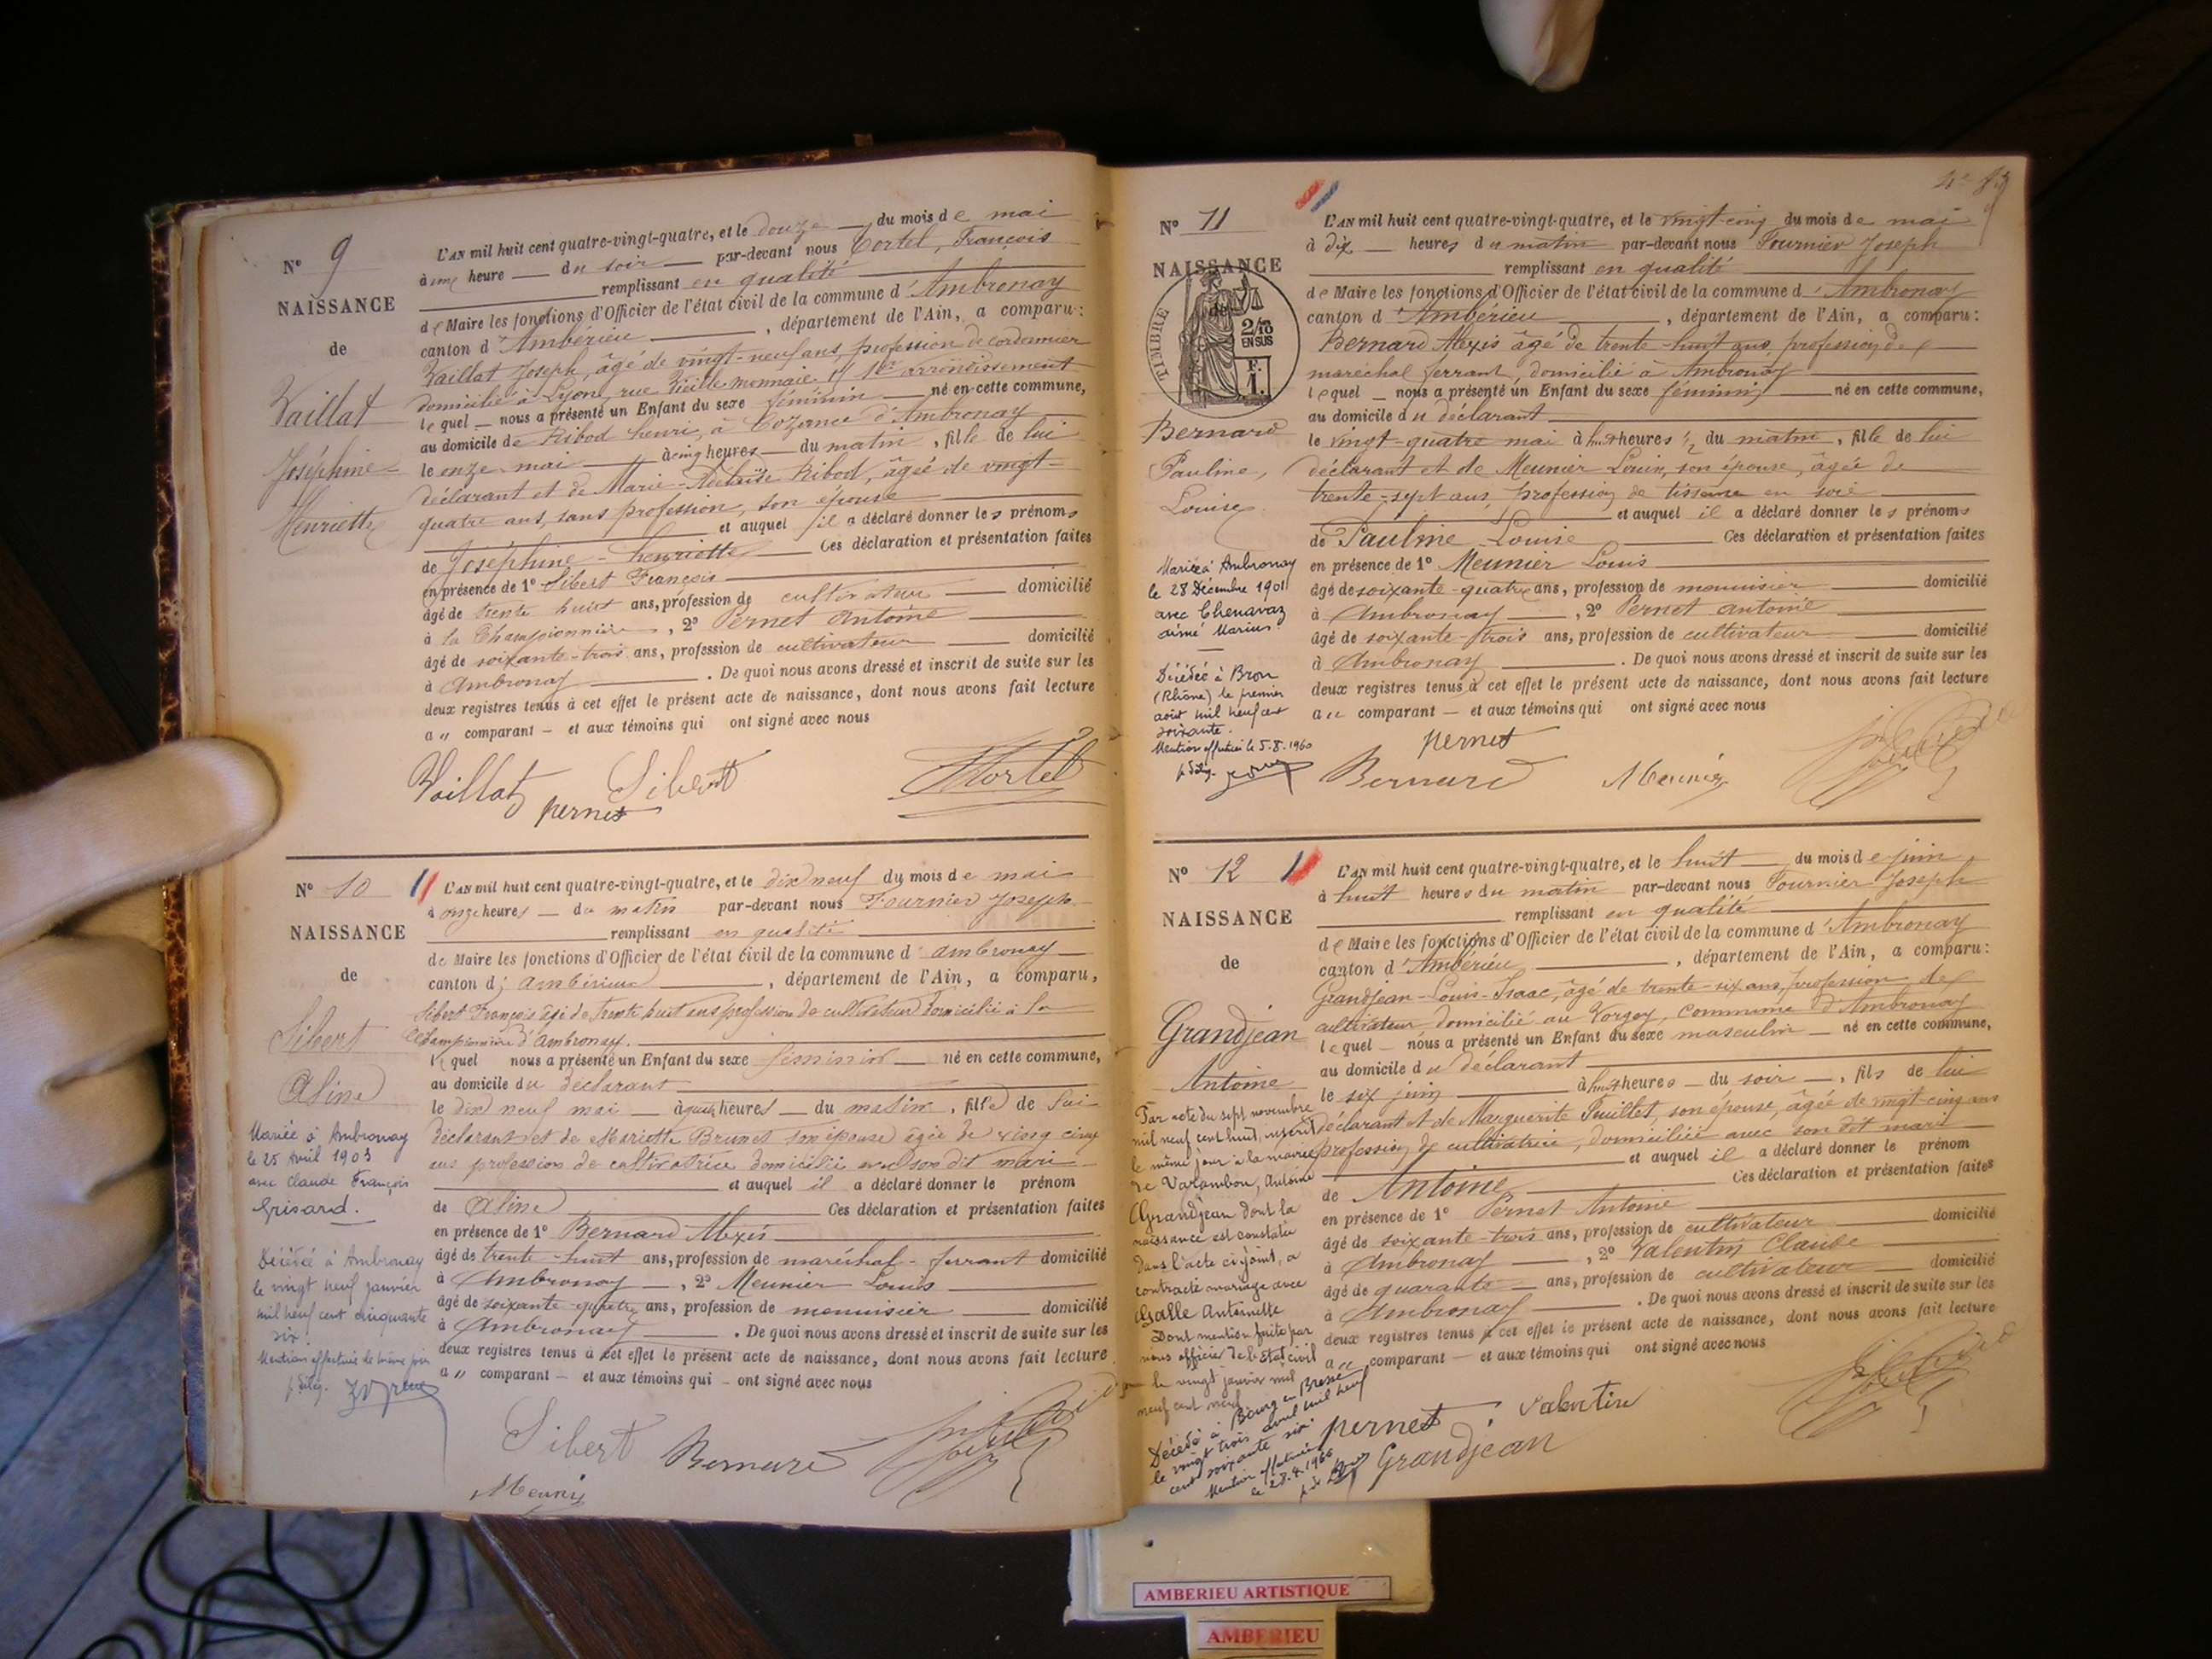 N° 9
NAISSANCE
de
Vaillat
Joséphine
Henriette
L'AN mil huit cent quatre-vingt-quatre, et le douze du mois de mai
à une heure du soir par-devant nous Tortel, François
remplissant en qualité
de Maire les fonctions d'Officier de l'état civil de la commune d'Ambronay
canton d'Ambérieu, département de l'Ain, a comparu:
Vaillat Joseph, âgé de vingt-neuf ans, profession de cordonnier
domicilié à Lyon, rue Vieille monnaie arrondissement
lequel nous a présenté un Enfant du sexe féminin né en cette commune,
au domicile de Ribod henri, à Cozance d'Ambronay
le onze mai à cinq heures du matin, fille de lui
déclarant et de Marie-Adélaïde Ribod, âgée de vingt-
quatre ans, sans profession, son épouse
et auquel il a déclaré donner les prénoms
de Joséphine-henriette Ces déclaration et présentation faites
en présence de 1° Sibert François
âgé de trente huit ans, profession de cultivateur domicilié
à la Championnière, 2° Pernet Antoine
âgé de soixante-trois ans, profession de cultivateur domicilié
à Ambronay. De quoi nous avons dressé et inscrit de suite sur les
deux registres tenus à cet effet le présent acte de naissance, dont nous avons fait lecture
au comparant et aux témoins qui ont signé avec nous
Vaillat Sibert Tortel
pernet
N° 10
NAISSANCE
de
Sibert
Aline
Mariée à Ambronay
le 25 Avril 1903
avec Claude François
Grisard.
Décédée à Ambronay
le vingt neuf janvier
mil neuf cent cinquante
six
Mention effectuée le même jour
L'AN mil huit cent quatre-vingt-quatre, et le dix neuf du mois de mai
à onze heures du matin par-devant nous Fournier Joseph
remplissant en qualité
de Maire les fonctions d'Officier de l'état civil de la commune d'ambronay
canton d'ambérieu, département de l'Ain, a comparu,
Sibert François âgé de trente huit ans profession de cultivateur domicilié à la
Championnière d'ambronay.
lequel nous a présenté un Enfant du sexe féminin né en cette commune,
au domicile du déclarant
le dix neuf mai à heures du matin, fille de lui
déclarant et de Mariette Brunet son épouse âgée de vingt cinq
ans profession de cultivatrice domiciliée avec son dit mari
et auquel il a déclaré donner le prénom
de Aline Ces déclaration et présentation faites
en présence de 1° Bernard Alexis
âgé de trente-huit ans, profession de maréchal-ferrant domicilié
à Ambronay, 2° Meunier Louis
âgé de soixante-quatre ans, profession de menuisier domicilié
à Ambronay. De quoi nous avons dressé et inscrit de suite sur les
deux registres tenus à cet effet le présent acte de naissance, dont nous avons fait lecture
au comparant et aux témoins qui ont signé avec nous
Sibert Bernard
Meunier
N° 11
NAISSANCE
de
TIMBRE
2/10
EN SUS
F.
1.
Bernard
Pauline,
Louise
Mariée à Ambronay
le 28 Décembre 1901
avec Chenavaz
aimé Marius.
Décédée à Bron
(Rhône) le premier
août mil neuf cent
soixante.
Mention effectuée le 5.8.1960
L'AN mil huit cent quatre-vingt-quatre, et le vingt-cinq du mois de mai
à dix heures du matin par-devant nous Fournier Joseph
remplissant en qualité
de Maire les fonctions d'Officier de l'état civil de la commune d'Ambronay
canton d'Ambérieu, département de l'Ain, a comparu:
Bernard Alexis âgé de trente-huit ans, profession de
maréchal ferrant, domicilié à Ambronay
lequel nous a présenté un Enfant du sexe féminin né en cette commune,
au domicile du déclarant
le vingt-quatre mai à huit heures ½ du matin, fille de lui
déclarant et de Meunier Louise, son épouse, âgée de
trente-sept ans, profession de tisseuse en soie
et auquel il a déclaré donner les prénoms
de Pauline Louise Ces déclaration et présentation faites
en présence de 1° Meunier Louis
âgé de soixante-quatre ans, profession de menuisier domicilié
à Ambronay, 2° Pernet Antoine
âgé de soixante-trois ans, profession de cultivateur domicilié
à Ambronay. De quoi nous avons dressé et inscrit de suite sur les
deux registres tenus à cet effet le présent acte de naissance, dont nous avons fait lecture
au comparant et aux témoins qui ont signé avec nous
pernet
Bernard Meunier
N° 12
NAISSANCE
de
Grandjean
Antoine
Par acte du sept novembre
mil neuf cent huit, inscrit
le même jour à la mairie
de Varambon, Antoine
Grandjean dont la
naissance est constatée
dans l'acte ci-joint, a
contracté mariage avec
Galle Antoinette
Dont mention faite par
nous officier de l'Etat civil
le vingt janvier mil
neuf cent neuf
Décédé à Bourg en Bresse
le vingt trois avril mil neuf
cent soixante six.
Mention effectuée
le 28.4.1966
L'AN mil huit cent quatre-vingt-quatre, et le huit du mois de juin
à huit heures du matin par-devant nous Fournier Joseph
remplissant en qualité
de Maire les fonctions d'Officier de l'état civil de la commune d'Ambronay
canton d'Ambérieu, département de l'Ain, a comparu:
Grandjean-Louis-Isaac, âgé de trente-six ans, profession de
cultivateur domicilié au Vorgey, commune d'Ambronay
lequel nous a présenté un Enfant du sexe masculin né en cette commune,
au domicile du déclarant
le six juin à huit heures du soir, fils de lui
déclarant et de Marguerite Juillet, son épouse, âgée de vingt-cinq ans
profession de cultivatrice, domiciliée avec son dit mari
et auquel il a déclaré donner le prénom
de Antoine Ces déclaration et présentation faites
en présence de 1° Pernet Antoine
âgé de soixante-trois ans, profession de cultivateur domicilié
à Ambronay, 2° Valentin Claude
âgé de quarante ans, profession de cultivateur domicilié
à Ambronay. De quoi nous avons dressé et inscrit de suite sur les
deux registres tenus à cet effet le présent acte de naissance, dont nous avons fait lecture
au comparant et aux témoins qui ont signé avec nous
pernet Valentin
Grandjean
AMBERIEU ARTISTIQUE
AMBERIEU